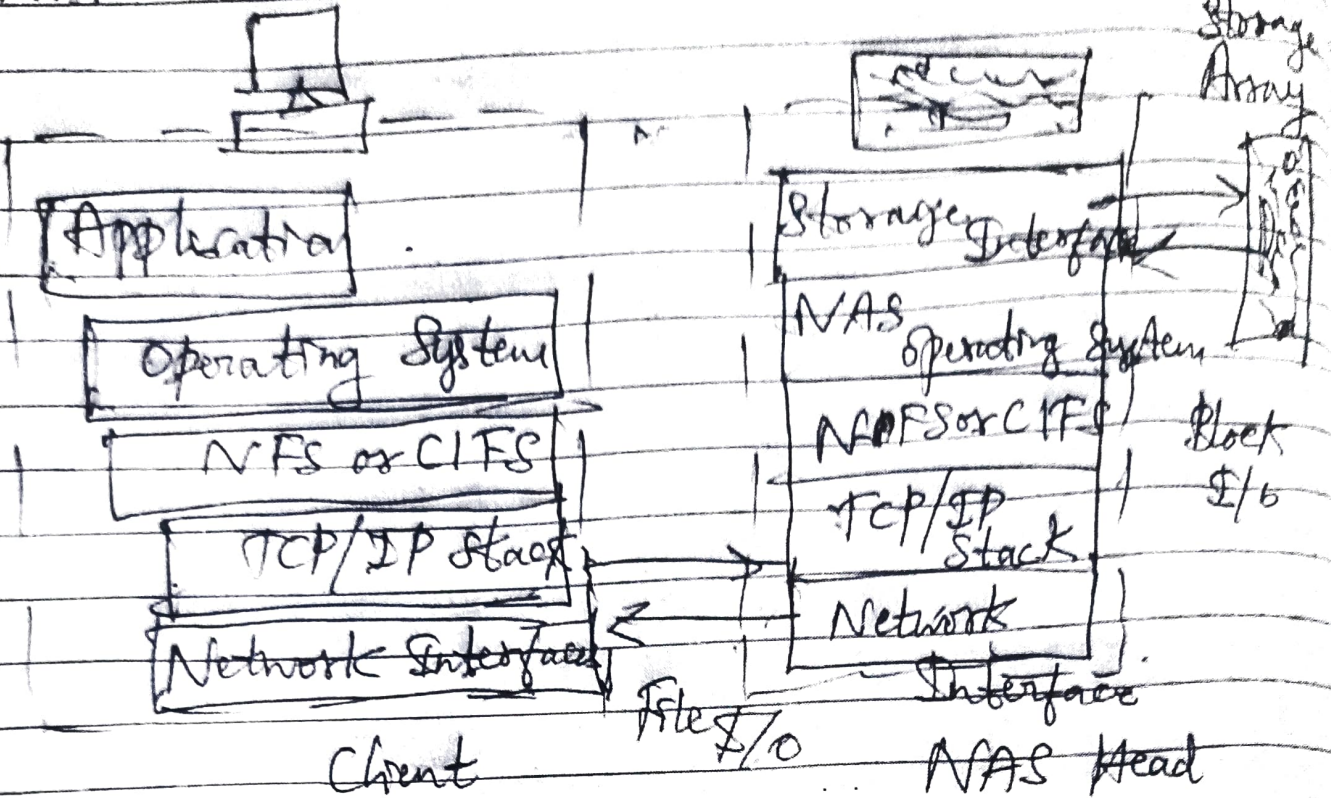 Storage
Array
Application
Operating System
NFS or CIFS
TCP/IP Stack
Network Interface
Client
File I/O
Storage
Interface
NAS
operating System
NFS or CIFS
TCP/IP
Stack
Network
Interface
NAS Head
Block
I/O